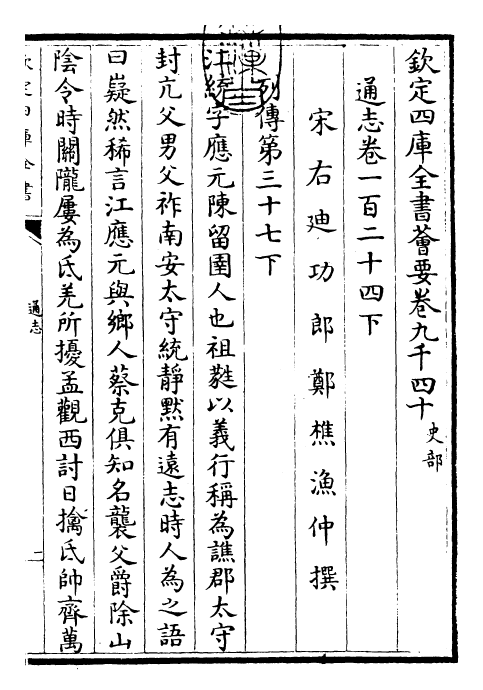 欽定四庫全書薈要卷九千四十 史部
通志卷一百二十四下
宋右迪功郎鄭樵漁仲撰
列傳第三十七下
江統字應元陳留圉人也祖蕤以義行稱為譙郡太守
封亢父男父祚南安太守統靜默有遠志時人為之語
曰嶷然稀言江應元與鄉人蔡克俱知名襲父爵除山
陰令時關隴屢為氐羌所擾孟觀西討日擒氐帥齊萬
欽定四庫全書
通志